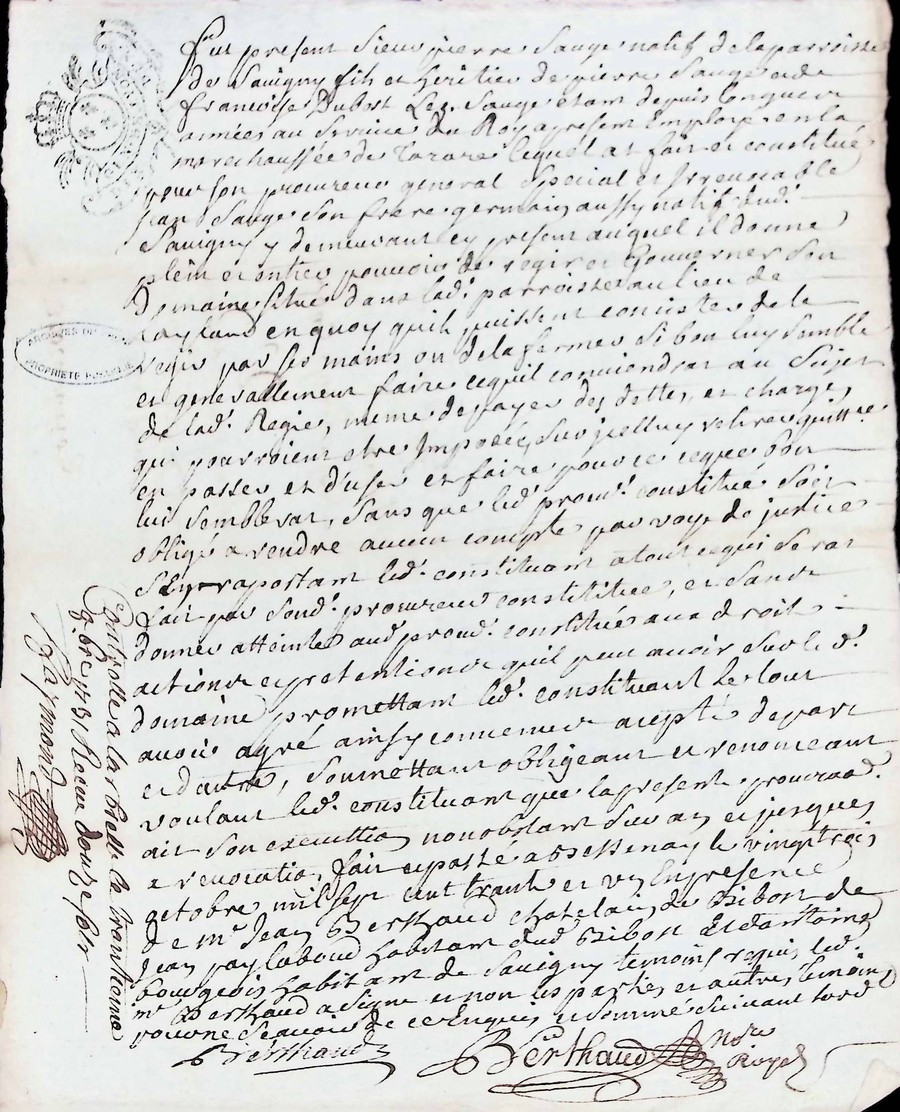 Fut present Sieur pierre Sauge natif de la parroisse
de Savigny fils et heritier de pierre Sauge et de
francoise Dubost Led. Sauge etant depuis longues
années au Service du Roy apresent Employé en la
marechaussée de Tarare lequel a fait et constitué
pour son procureur general Special et Irrevocable
jean Sauge Son frere germain aussy natif dud.
Savigny y demeurant cy present auquel il donne
plein et entier pouvoir de regir et Gouverner Son
Domaine Situé dans lad. parroisse au lieu de
en quoy quil puissent consister de le
regir par ses mains ou de lafermer Si bon luy Semble
et generallement faire ce quil conviendrat au Sujet
de lad. Regie, meme de payer des dettes, et charges
qui pourroient etre Imposées, Sur jcelluy retirer quittce.
en passer et d'user et faire pour ce que bon
lui Semblerat, Sans que led. procur. constitué Soit
obligé a rendre aucun compte par voye de justice
S'En raportant led. constituant a tout ce qui Serat
fait par Sond. procureur constitué, et Sans
donner atteinte aud. procur. constitué aux droits
actions et pretentions quil peut avoir Sur led.
domaine promettant led. constituant Le tout
avoir agréé ainsy convenu acepté de part
et dautre, Soumettant obligeant et renonceant
voulant led. constituant que la present procurad.
ait Son execution nonobstant Suran et jusques
a revocation, fait et passé a Bessenay le vingt trois
octobre mil Sept cent trante et un En presence
de mr. Jean Berthaud chatelain de Bibost de
Jean habitant dud. Bibost Et d'antoine
bourgeois habitant de Savigny temoins requis led.
mr. Berthaud a signé et non les parties et autres temoins
pour ne Scavoir de ce Enquis et Sommé Suivant lord
Berthaud
Berthaud Nore
Royal
Controllé a larbresle le trantieme
8bre 1731 Recu douze sols
Raymond
ARCHIVES DU
PROPRIETE PUBLIQUE